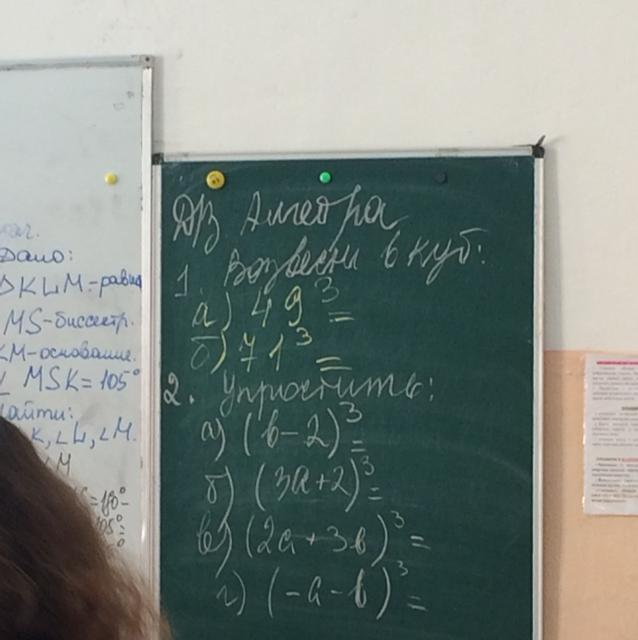 Дано:
ΔKLM-равно
MS-биссектр.
KM-основание.
∠ MSK = 105°
Найти:
∠K, ∠L, ∠M.
Д/З Алгебра
1. Возвести в куб:
а) 49³ =
б) 71³ =
2. Упростить:
а) (b-2)³ =
б) (3a+2)³ =
в) (2a+3b)³ =
г) (-a-b)³ =